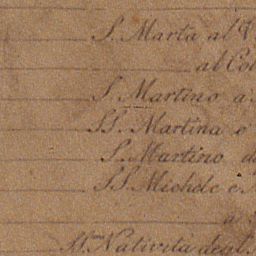 S. Marta al V
al Col
S. Martino a
SS. Martina e
S. Martino de
SS. Michele e
a
SS.ma Natività degl